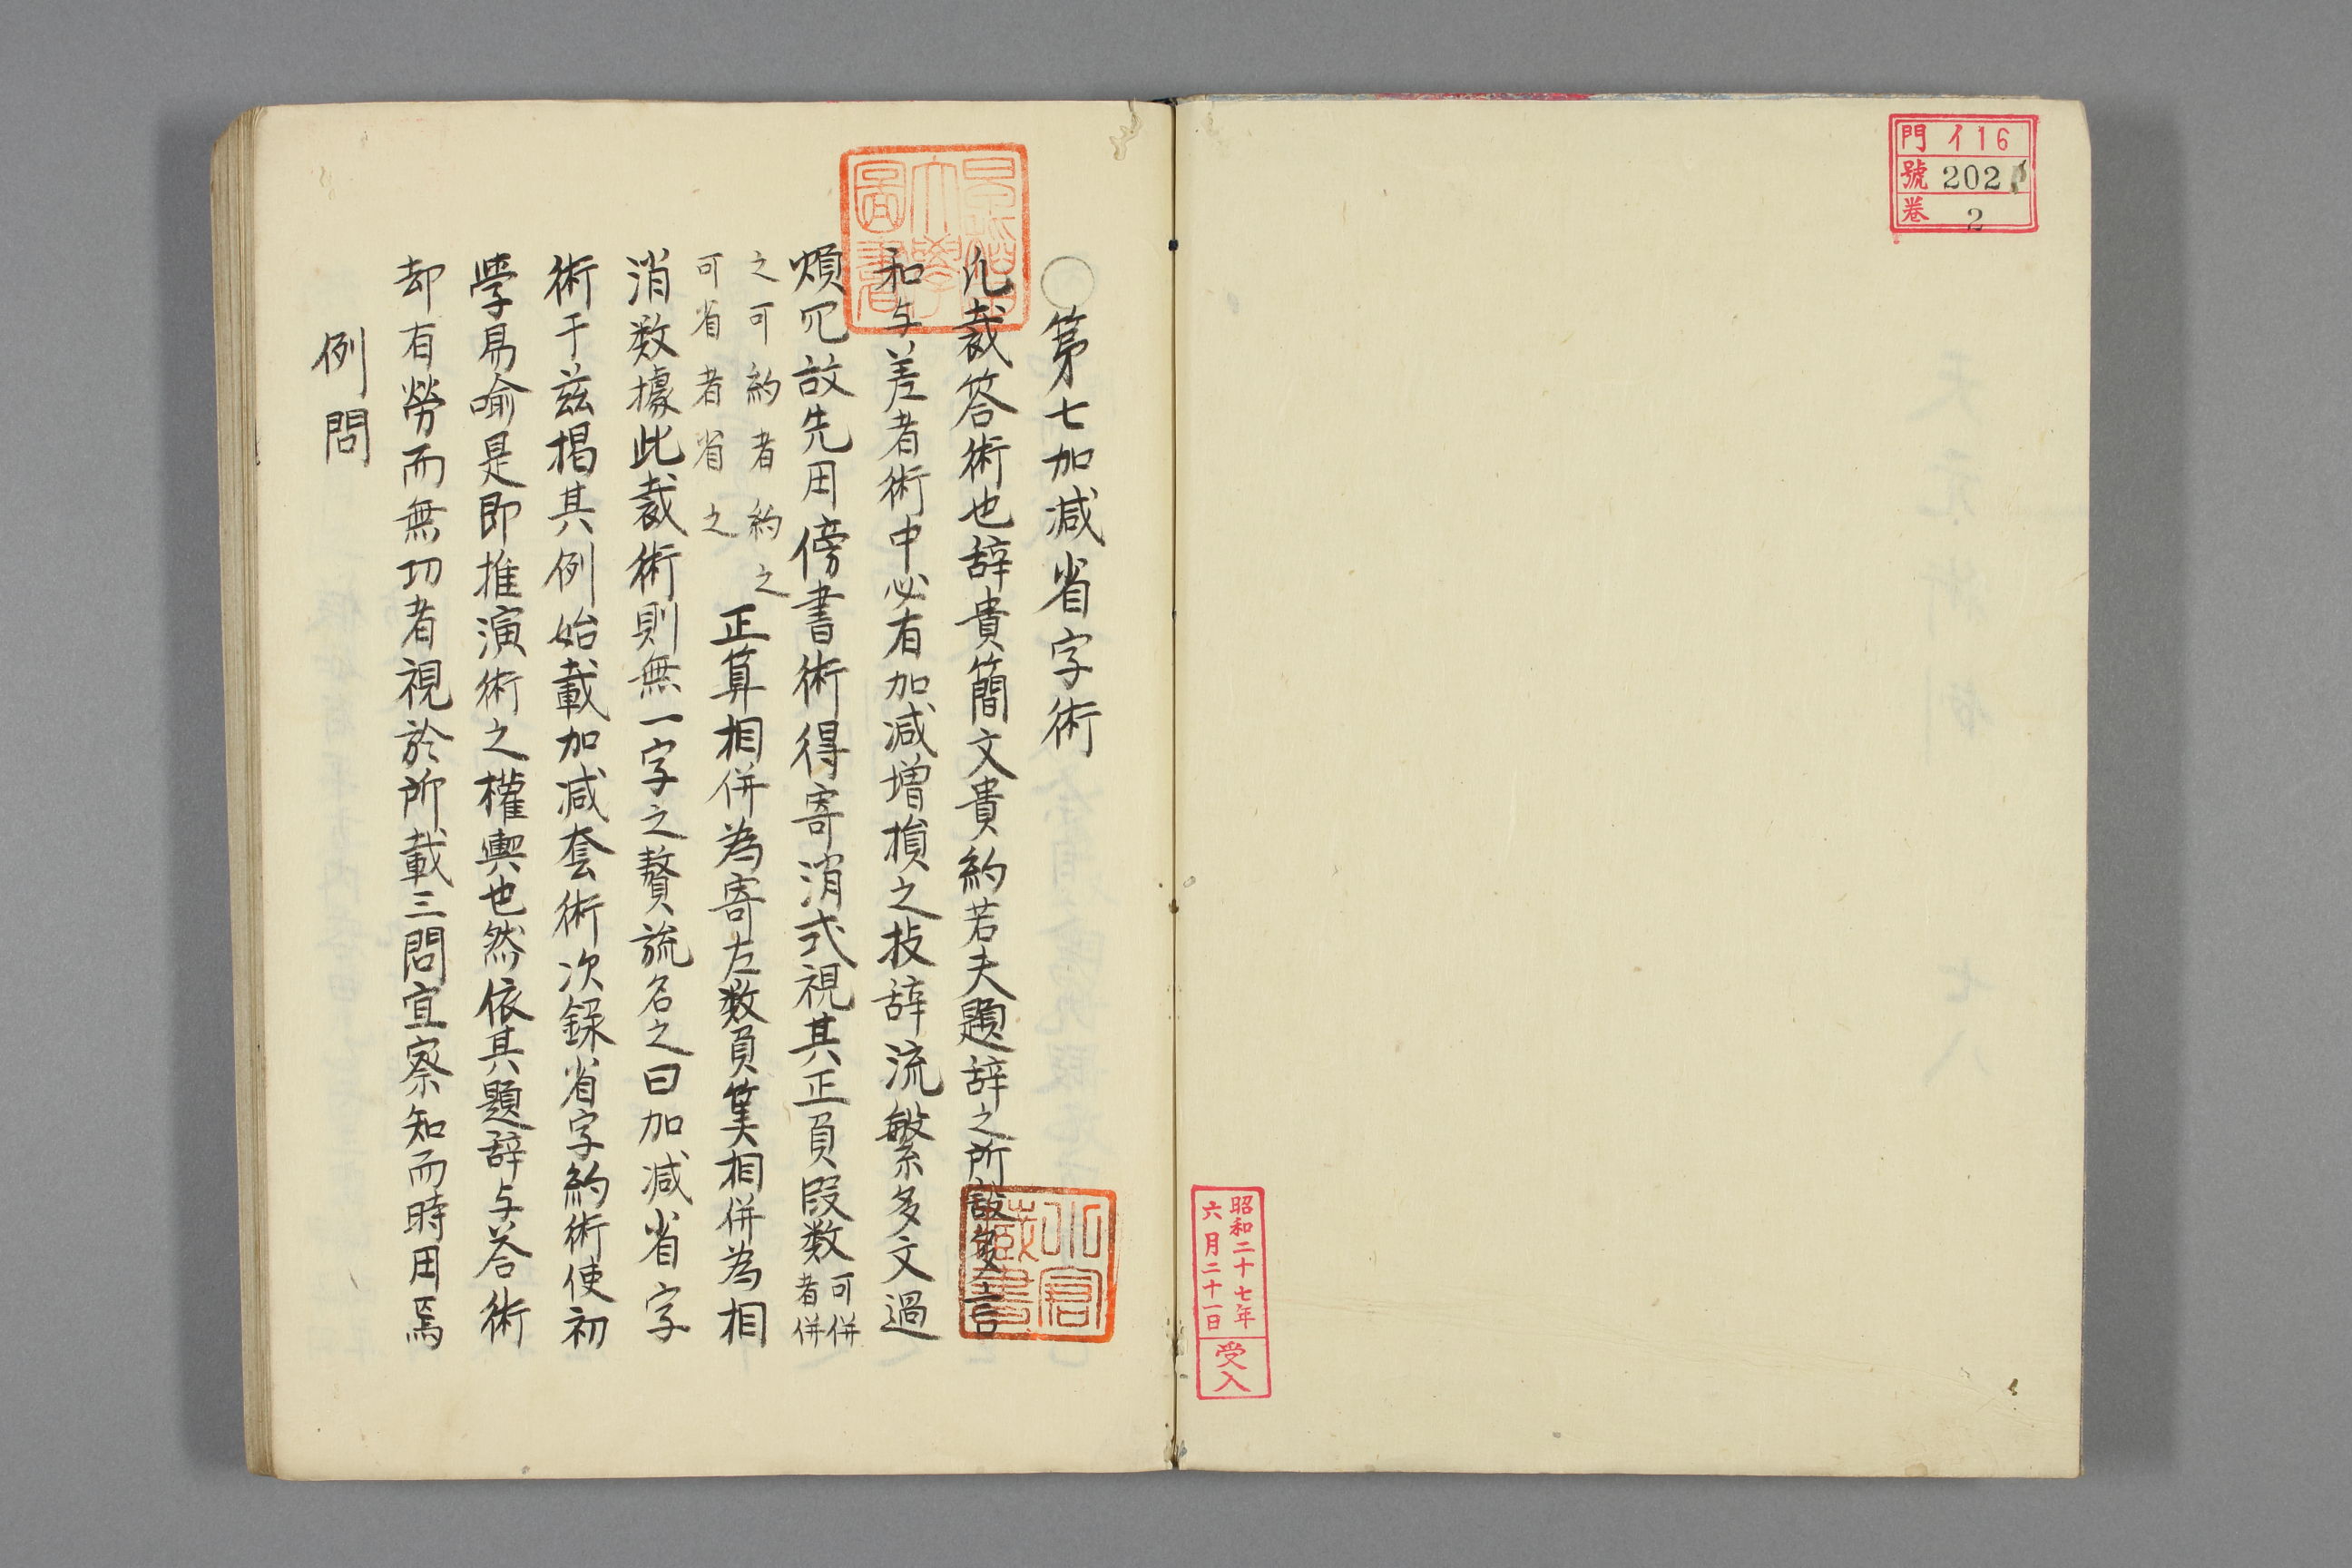 門 イ16
號 202
卷 2
昭和二十七年
六月二十一日
受入
○第七加減省字術
凡裁答術也辞貴簡文貴約若夫題辞之所設多言
和与差者術中必有加減増損之技辞流繁多文過
煩冗故先用傍書術得寄消式視其正負段数可併者併
之可約者約之
可省者省之
正算相併為寄左数負算相併為相
消数據此裁術則無一字之贅疏名之曰加減省字
術于茲掲其例始載加減套術次録省字約術使初
学易喩是即推演術之權輿也然依其題辞与荅術
却有勞而無功者視於所載三問宜察知而時用焉
例問
早稲田大學圖書
小倉藏書